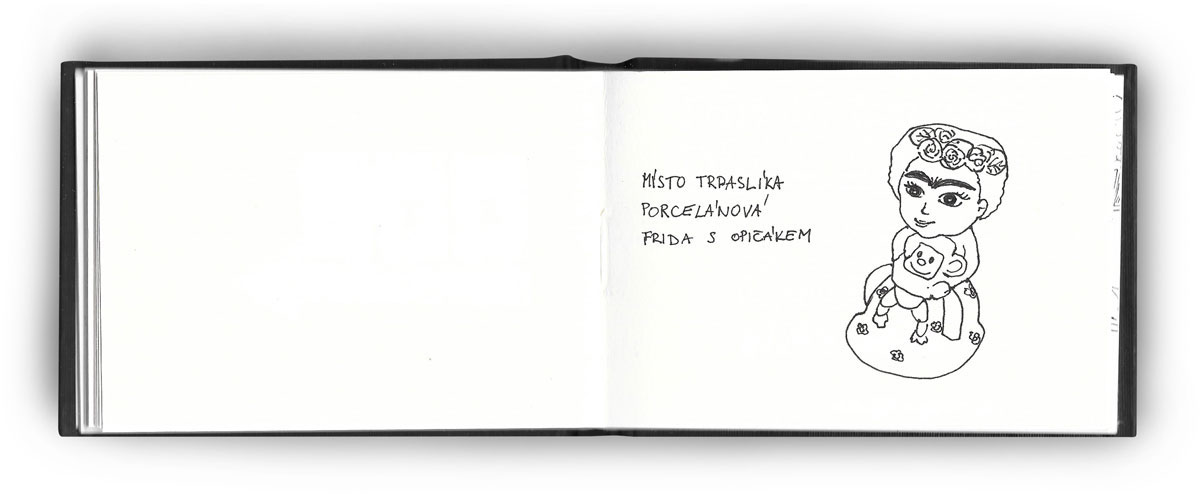 MÍSTO TRPASLÍKA
PORCELÁNOVÁ
FRIDA S OPIČÁKEM